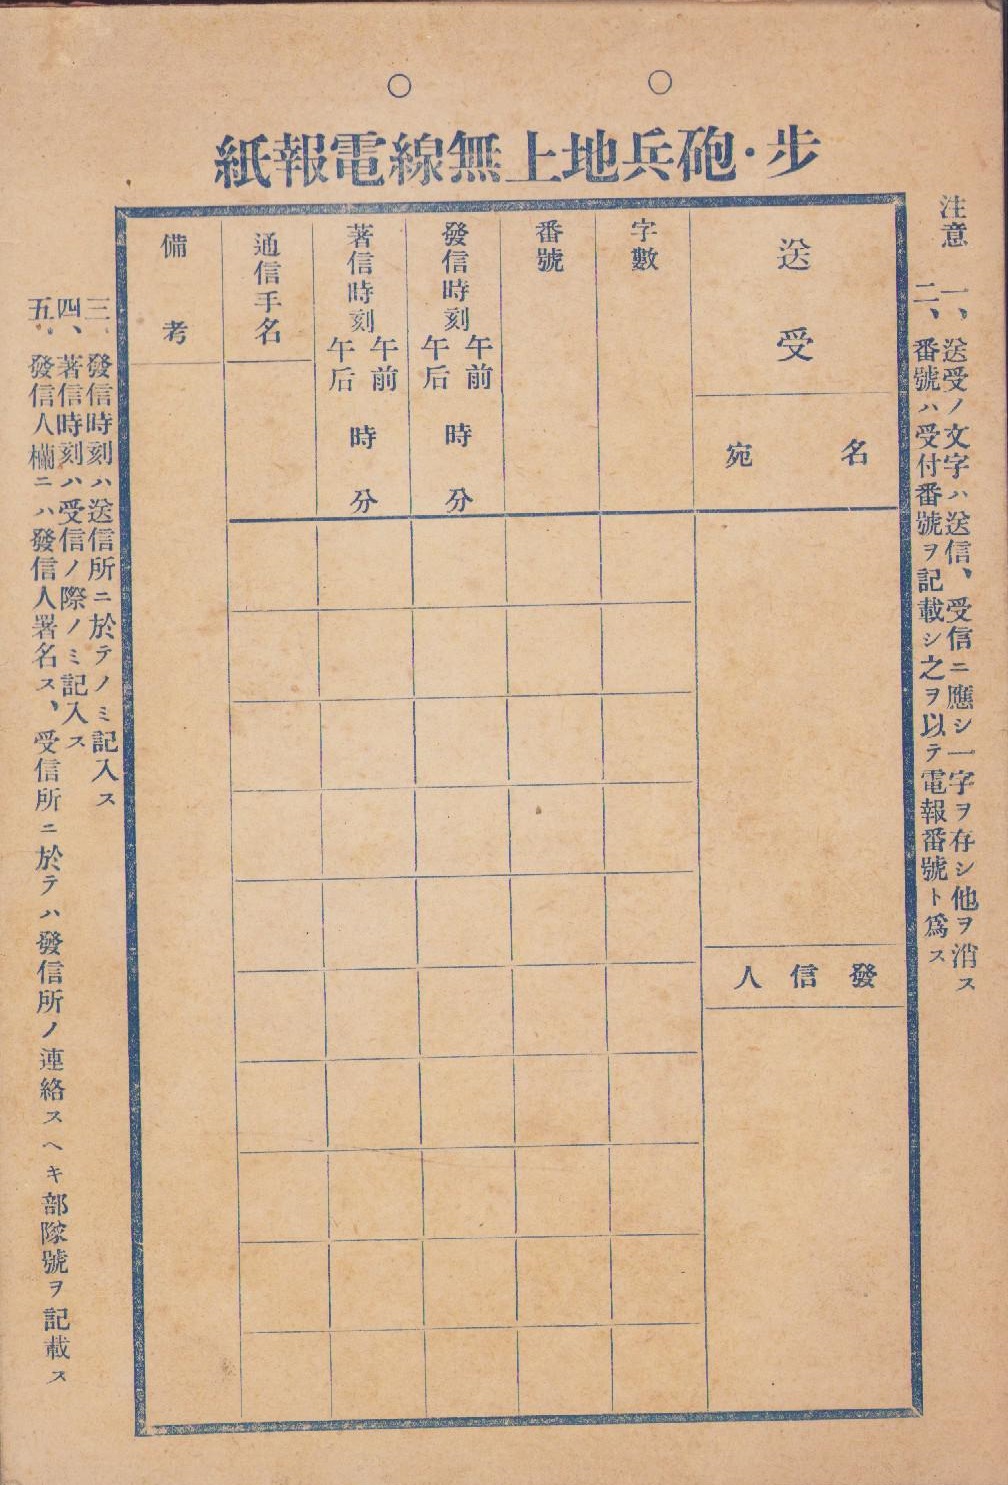 步・砲兵地上無線電報紙
注意
一、送受ノ文字ハ送信、受信ニ應シ一字ヲ存シ他ヲ消ス
二、番號ハ受付番號ヲ記載シ之ヲ以テ電報番號ト爲ス
送受
名宛
發信人
字數
番號
發信時刻
午前
午后
時分
著信時刻
午前
午后
時分
通信手名
備考
三、發信時刻ハ送信所ニ於テノミ記入ス
四、著信時刻ハ受信ノ際ノミ記入ス
五、發信人欄ニハ發信人署名ス、受信所ニ於テハ發信所ノ連絡スヘキ部隊號ヲ記載ス